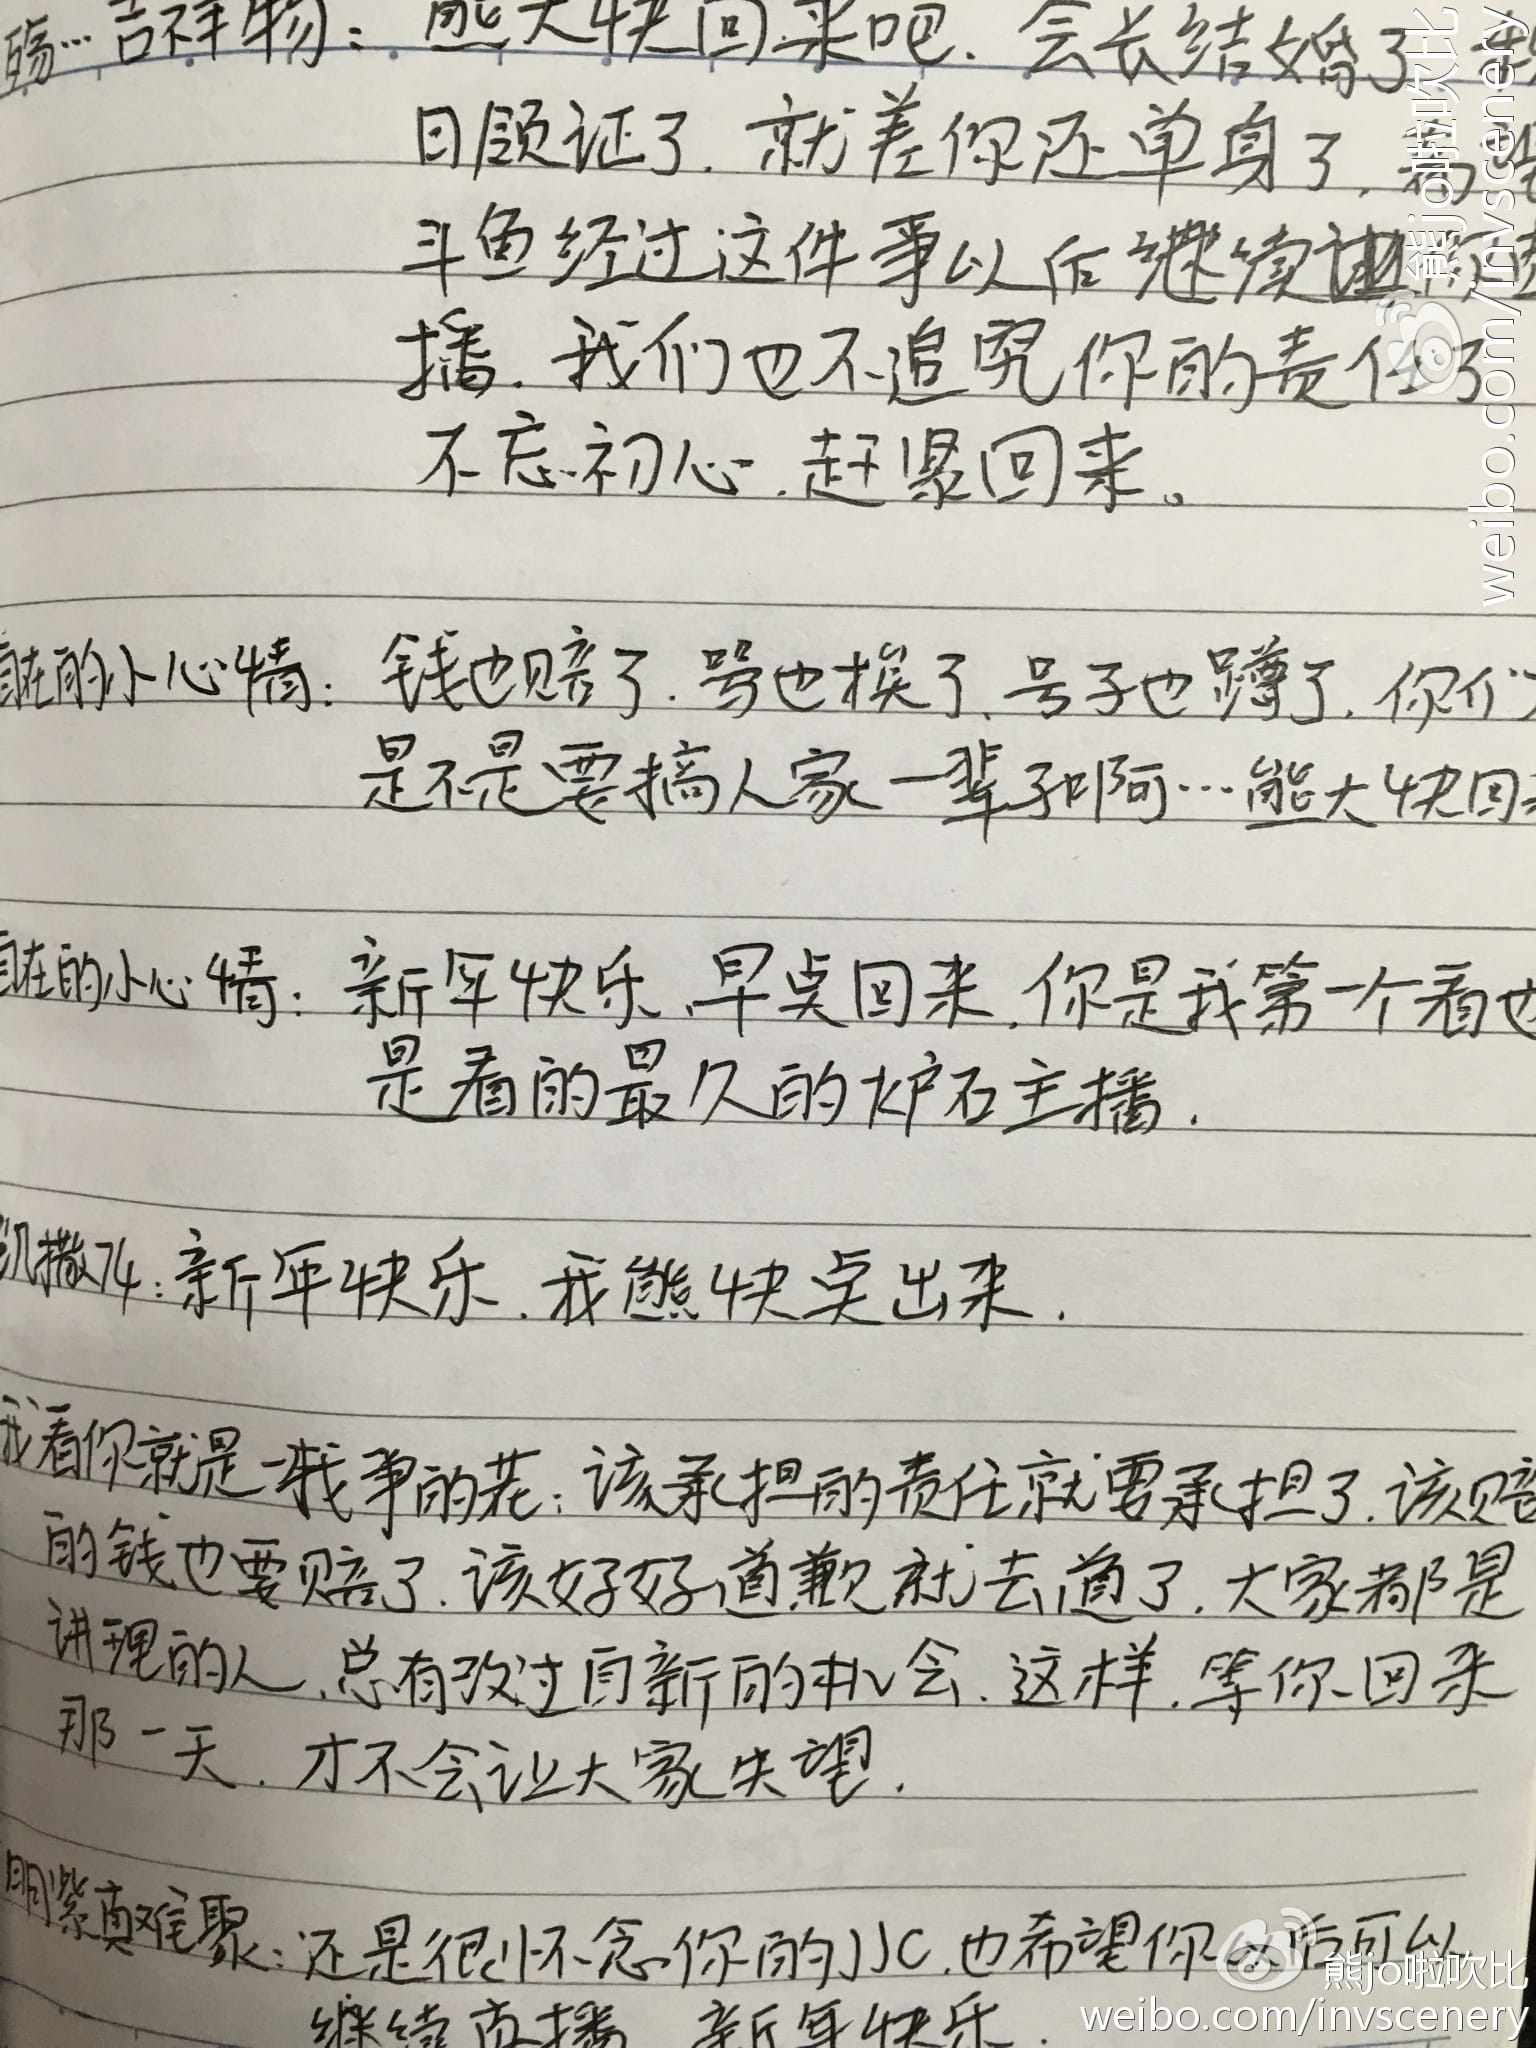 吉祥物：熊大快回来吧、会长结婚了
日领证了．就差你还单身了．
斗鱼经过这件事以后继续让你直
播．我们也不追究你的责任了
不忘初心．赶紧回来。
自在的小心情：钱也赔了．骂也挨了、号子也蹲了．你们
是不是要搞人家一辈子啊…熊大快回来
自在的小心情：新年快乐、早点回来．你是我第一个看也
是看的最久的炉石主播．
凯撒74：新年快乐．我熊快点出来．
我看你就是我爭的花：该承担的责任就要承担了．该赔
的钱也要赔了．该好好道歉就去道了．大家都是
讲理的人．总有改过自新的机会．这样．等你回来
那一天．才不会让大家失望．
明紫真难聚：还是很怀念你的JJC．也希望你以后可以
继续直播 新年快乐．
熊jo啦吹比
weibo.com/invscenery
熊jo啦吹比
weibo.com/invscenery